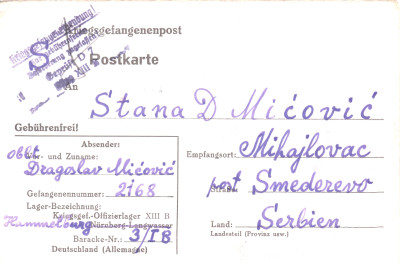 Kriegsgefangenenpost
S
Postkarte
An
Stana D Mićović
Gebührenfrei!
Absender:
Vor- und Zuname:
Dragoslav Mićović
Gefangenennummer: 2168
Lager-Bezeichnung:
Kriegsgef.-Offizierlager XIII B
Hammelburg Nürnberg-Langwasser
Baracke-Nr.: 3/IB
Deutschland (Allemagne)
Empfangsort: Mihajlovac
Straße: post Smederevo
Land: Serbien
Landesteil (Provinz usw.)